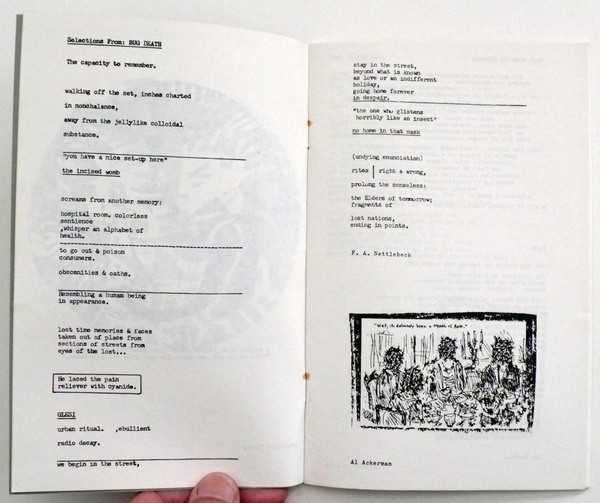 Selections From: BUG DEATH
The capacity to remember.
walking off the set, inches charted
in nonchalance,
away from the jellylike colloidal
substance.
"you have a nice set-up here"
the incised womb
screams from another memory:
hospital room, colorless
sentience
,whisper an alphabet of
health.
to go out & poison
consumers.
obscenities & oaths.
Resembling a human being
in appearance.
lost time memories & faces
taken out of place from
sections of streets from
eyes of the lost...
He laced the pain
reliever with cyanide.
GLESI
urban ritual. ,ebullient
radio decay.
we begin in the street,
stay in the street,
beyond what is known
as love or an indifferent
holiday,
going home forever
in despair.
"the one who glistens
horribly like an insect"
no home in that mask
(undying enunciation)
rites | right a wrong,
prolong the senseless:
the Elders of tommorrow;
fragments of
lost nations,
ending in points.
F. A. Nettlebeck
"Well, it's definitely been a Month of
Al Ackerman